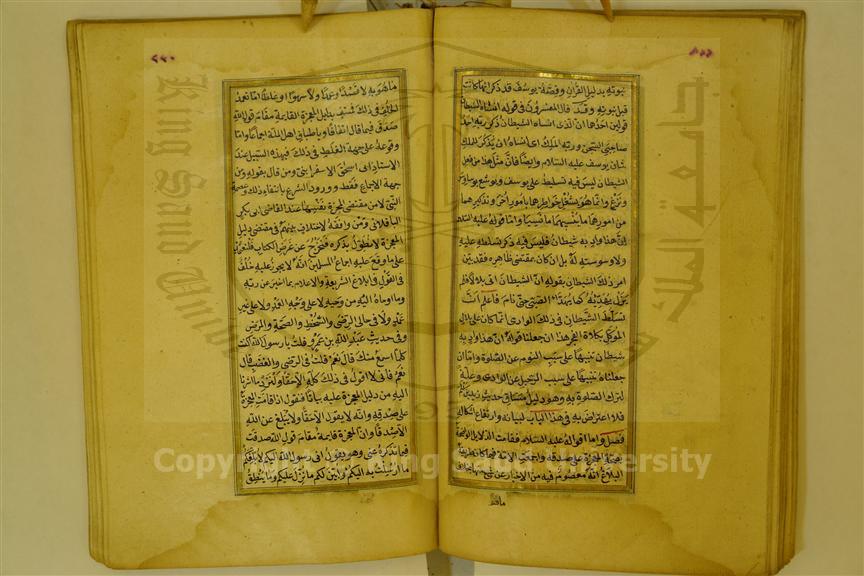 نبوته بدليل القرآن وقصة يوسف قد ذكر انها كانت
قبل نبوته وقد قال المفسرون في قوله انساه الشيطان
قولين احدهما ان الذي انساه الشيطان ذكر ربه احد
صاحبي السجن وربه الملك اي انساه ان يذكر للملك
شان يوسف عليه السلام وايضا فان مثل هذا من فعل
الشيطان ليس فيه تسليط على يوسف ويوشع بوساوس
ونزغ وانما هو بشغل خواطرهما بامور اخر وتذكيرهما
من امورهما ما ينسيهما ما نسيا واما قوله عليه السلام
ان هذا واد به شيطان فليس فيه ذكر تسلطه عليه
ولا وسوسته له بل ان كان مقتضى ظاهره فقد بين
امر ذلك الشيطان بقوله ان الشيطان اتى بلالا فلم
يزل يهديه كما يهدأ الصبي حتى نام فاعلم ان
تسلط الشيطان في ذلك الوادي انما كان على بلال
الموكل بكلاءة الفجر هذا ان جعلنا قوله ان هذا واد به
شيطان تنبيها على سبب النوم عن الصلوة واما ان
جعلناه تنبيها على سبب الرحيل عن الوادي وعلة
لترك الصلوة به وهو دليل مساق حديث زيد بن
فلا اعتراض به في هذا الباب لبيانه وارتفاع اشكاله
فصل واما اقواله عليه السلام فقامت الدلائل الواضحة
بصحة المعجزة على صدقه واجمعت الامة فيما كان طريقه
البلاغ انه معصوم فيه من الاخبار عن شيء
ما هو به لا قصدا وعمدا ولا سهوا او غلطا اما تعمد
الخلف في ذلك فمنتف بدليل المعجزة القايمة مقام قول الله
صدق فيما قال اتفاقا وباطباق اهل الملة اجماعا واما
وقوعه على جهة الغلط في ذلك فبهذه السبيل عند
الاستاذ ابي اسحق الاسفرايني ومن قال بقوله ومن
جهة الاجماع فقط وورود الشرع بانتفاء ذلك وعصمة
النبي لا من مقتضى المعجزة نفسها عند القاضي ابي بكر
الباقلاني ومن وافقه لاختلاف بينهم في مقتضى دليل
المعجزة لا نطول بذكره فنخرج عن غرض الكتاب فلنعتمد
على ما وقع عليه اجماع المسلمين انه لا يجوز عليه خلف
في القول في ابلاغ الشريعة والاعلام بما اخبر عن ربه
وما اوحاه اليه من وحيه لا على وجه العمد ولا على غير
عمد ولا في حالي الرضى والسخط والصحة والمرض
وفي حديث عبد الله بن عمرو قلت يا رسول الله اكتب
كلما اسمع منك قال نعم قلت في الرضى والغضب قال
نعم فاني لا اقول في ذلك كله الا حقا ولنزد ما اشرنا
اليه من دليل المعجزة عليه بيانا فنقول اذا قامت المعجزة
على صدقه وانه لا يقول الا حقا ولا يبلغ عن الله
الا صدقا وان المعجزة قايمة مقام قول الله صدقت
فيما تذكره عني وهو يقول اني رسول الله اليكم لابلغكم
ما ارسلت به اليكم وابين لكم ما نزل عليكم وما ينطق
Copyright © King Saud University
جامعة الملك
King Saud University